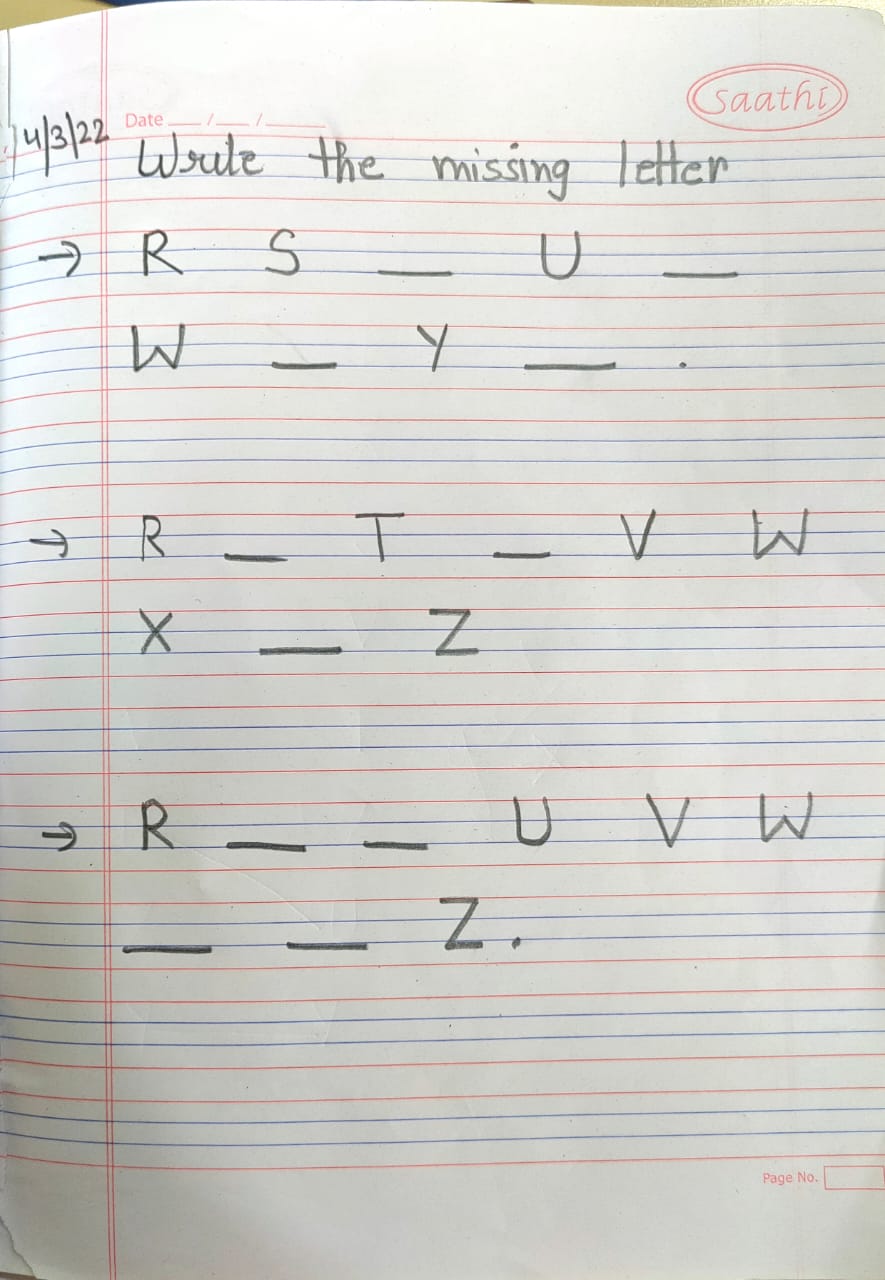 saathi
Date __/__/____
14/3/22
Write the missing letter
→ R S __ U __
W __ Y __ .
→ R __ T __ V W
X __ Z
→ R __ __ U V W
__ __ Z.
Page No.